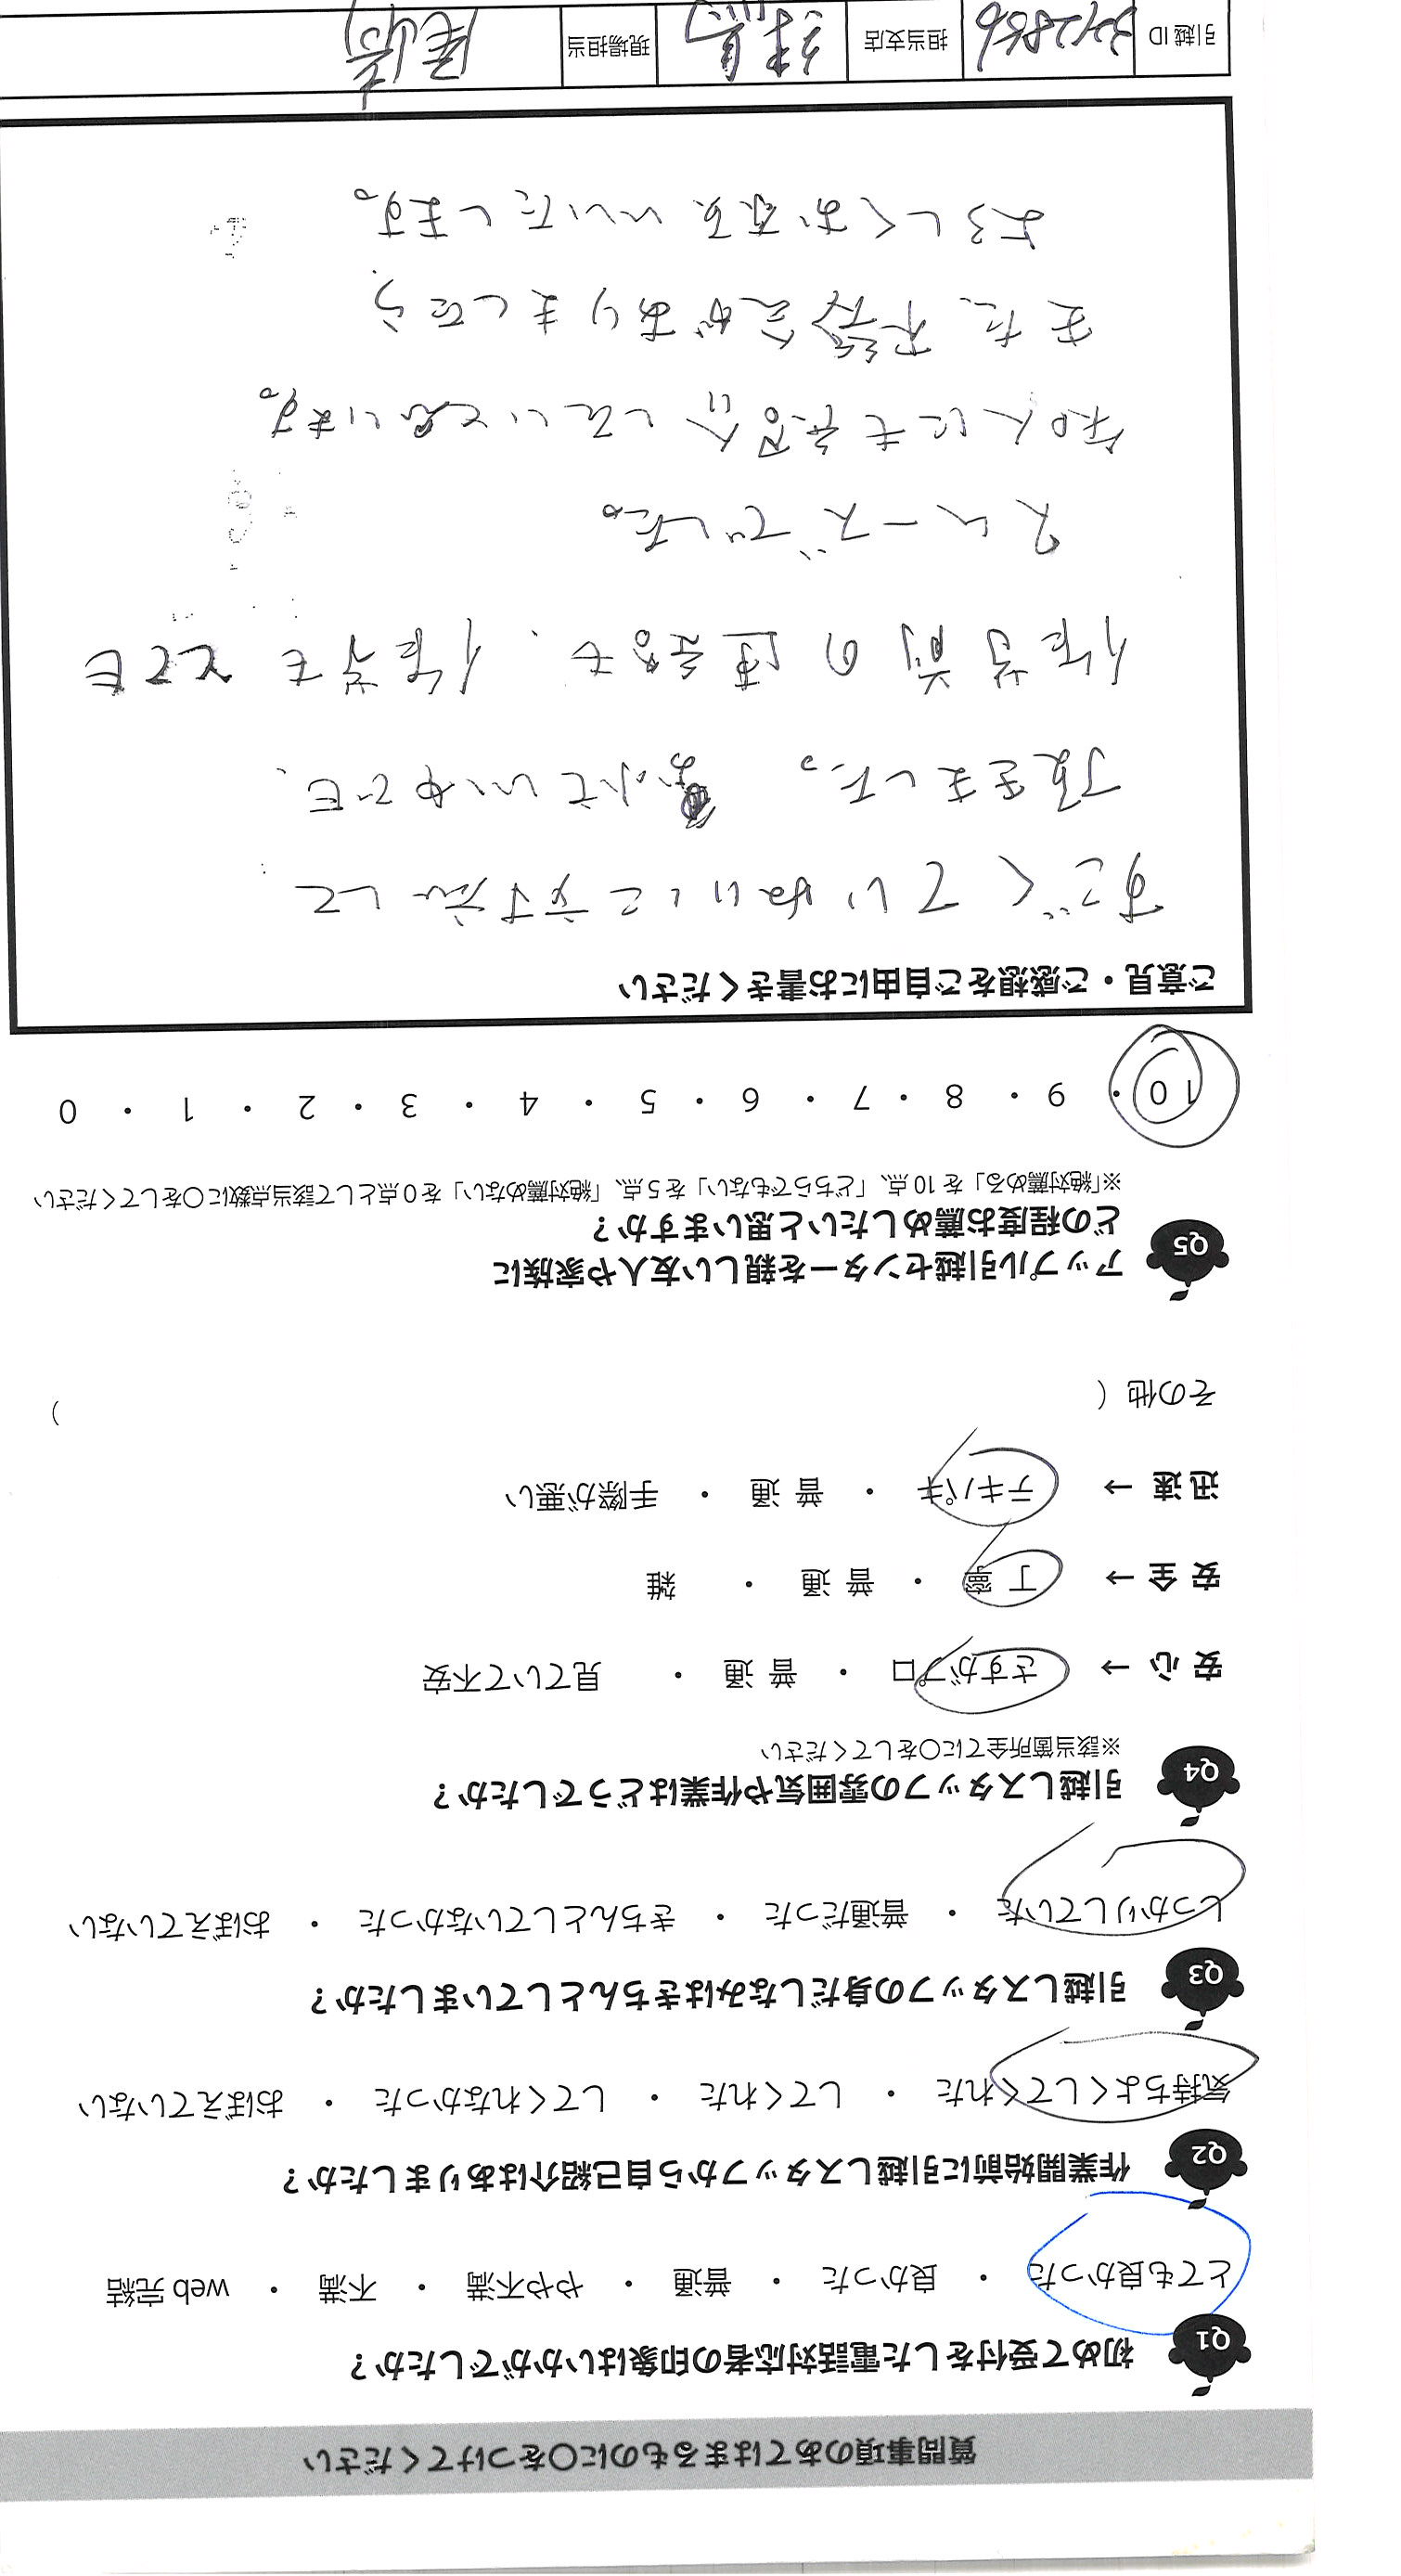 質問事項のあてはまるものに〇をつけてください
Q1 初めて受付をした電話対応者の印象はいかがでしたか？
とても良かった ・ 良かった ・ 普通 ・ やや不満 ・ 不満 ・ web完結
Q2 作業開始前に引越しスタッフから自己紹介はありましたか？
気持ちよくしてくれた ・ してくれた ・ してくれなかった ・ おぼえていない
Q3 引越しスタッフの身だしなみはきちんとしていましたか？
しっかりしていた ・ 普通だった ・ きちんとしていなかった ・ おぼえていない
Q4 引越しスタッフの雰囲気や作業はどうでしたか？
※該当箇所全てに〇をしてください
安心 → さすがプロ ・ 普通 ・ 見ていて不安
安全 → 丁寧 ・ 普通 ・ 雑
迅速 → テキパキ ・ 普通 ・ 手際が悪い
その他（ ）
Q5 アップル引越センターを親しい友人や家族に
どの程度お薦めしたいと思いますか？
※「絶対薦める」を10点、「どちらでもない」を5点、「絶対薦めない」を0点として該当点数に〇をしてください
10 ・ 9 ・ 8 ・ 7 ・ 6 ・ 5 ・ 4 ・ 3 ・ 2 ・ 1 ・ 0
ご意見・ご感想をご自由にお書きください
すごくていねいに対応して
頂きました。
作業前の連絡も、作業もとても
スムーズでした。
知人にも紹介したいと思います。
また、機会がありましたら
よろしくおねがいいたします。
引越ID 担当支店 練馬 現場担当 尾崎